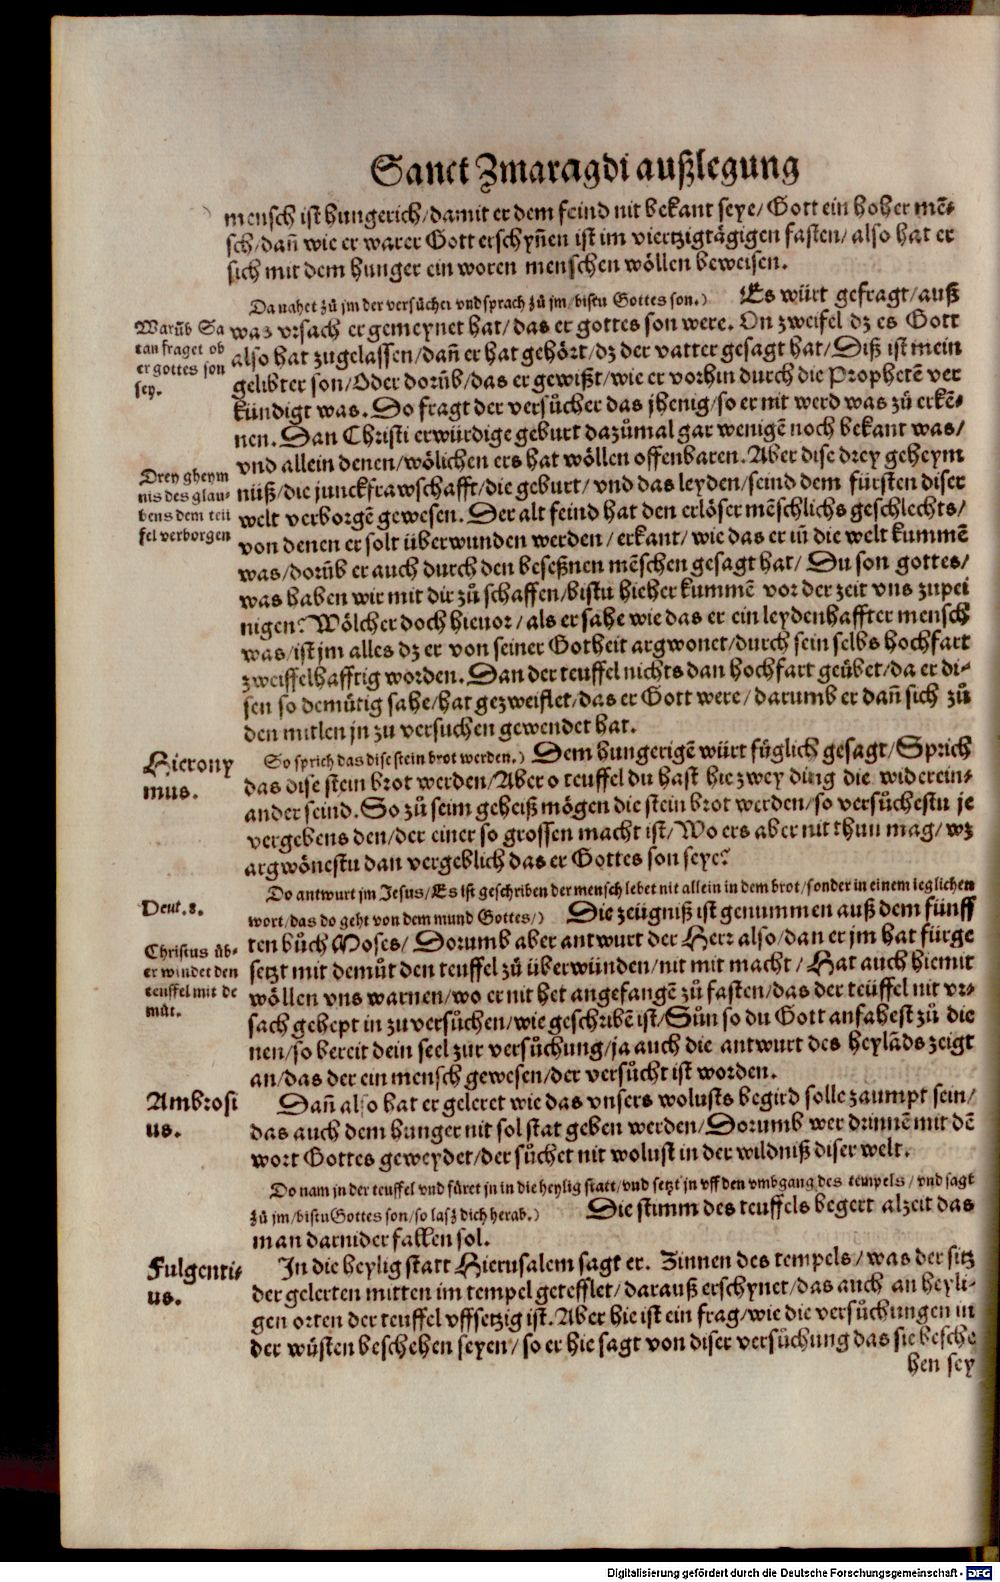 Sanct Zmaragdi außlegung
mensch ist hungerich/damit er dem feind nit bekant seye/Gott ein hoher mē-
sch/dañ wie er warer Gott erschyñen ist im viertzigtägigen fasten/also hat er
sich mit dem hunger ein woren menschen wöllen beweisen.
Da nahet zů jm der versůcher vnd sprach zů jm/bistu Gottes son.) Es würt gefragt/auß
Warūb Sa
tan fraget ob
er gottes son
sey.
was vrsach er gemeynet hat/das er gottes son were. On zweifel dz es Gott
also hat zugelassen/dañ er hat gehört/dz der vatter gesagt hat/Diß ist mein
gelibter son/Oder dorūb/das er gewißt/wie er vorhin durch die Prophetē ver
kündigt was. So fragt der versůcher das jhenig/so er nit werd was zů erkē-
nen. Dan Christi erwürdige geburt dazůmal gar wenigē noch bekant was/
vnd allein denen/wölichen ers hat wöllen offenbaren. Aber dise drey geheym
Drey gheym
nis des glau-
bens dem teü
fel verborgen
nüß/die junckfrawschafft/die geburt/vnd das leyden/seind dem fürsten diser
welt verborgē gewesen. Der alt feind hat den erlöser mēschlichs geschlechts/
von denen er solt überwunden werden/erkant/wie das er iñ die welt kummē
was/dorūb er auch durch den beseßnen mēschen gesagt hat/Du son gottes/
was haben wir mit dir zů schaffen/bistu hieher kummē vor der zeit vns zupei
nigen? Wölcher doch hieuor/als er sahe wie das er ein leydenhaffter mensch
was/ist jm alles dz er von seiner Gotheit argwonet/durch sein selbs hochfart
zweiffelhafftig worden. Dan der teuffel nichts dan hochfart geübet/da er di-
sen so demütig sahe/hat gezweiflet/das er Gott were/darumb er dañ sich zů
den mitlen jn zu versuchen gewendet hat.
Hierony
mus.
So sprich das dise stein brot werden.) Dem hungerigē würt füglich gesagt/Sprich
das dise stein brot werden/Aber o teuffel du hast hie zwey ding die widerein-
ander seind. So zů seim geheiß mögen die stein brot werden/so versůchestu je
vergebens den/der einer so grossen macht ist/Wo ers aber nit thun mag/wz
argwönestu dan vergeblich das er Gottes son seye?
Do antwurt jm Jesus/Es ist geschriben der mensch lebet nit allein in dem brot/sonder in einem ieglichen
Deut.8.
wort/das do geht von dem mund Gottes/) Die zeügniß ist genummen auß dem fünff
Christus üb-
er windet den
teuffel mit de
můt.
ten bůch Moses/Dorumb aber antwurt der Herr also/dan er jm hat fürge
setzt mit demůt den teuffel zů überwünden/nit mit macht/Hat auch hiemit
wöllen vns warnen/wo er nit het angefangē zů fasten/das der teüffel nit vr-
sach gehept in zu versůchen/wie geschribē ist/Sůn so du Gott anfahest zů die
nen/so bereit dein seel zur versůchung/ja auch die antwurt des heylāds zeigt
an/das der ein mensch gewesen/der versůcht ist worden.
Ambrosi
us.
Dañ also hat er geleret wie das vnsers wolusts begird solle zaumpt sein/
das auch dem hunger nit sol stat geben werden/Dorumb wer drinnē mit dē
wort Gottes geweydet/der sůchet nit wolust in der wildniß diser welt.
Do nam jn der teuffel vnd füret jn in die heylig statt/vnd setzt jn vff den vmbgang des tempels/vnd sagt
zů jm/bistu Gottes son/so lasz dich herab.) Die stimm des teuffels begert alzeit das
man darnider fallen sol.
Fulgenti-
us.
In die heylig statt Hierusalem sagt er. Zinnen des tempels/was der sitz
der gelerten mitten im tempel getefflet/darauß erschynet/das auch an heyli-
gen orten der teuffel vffsetzig ist. Aber hie ist ein frag/wie die versůchungen in
der wüsten beschehen seyen/so er hie sagt von diser versůchung das sie besche
hen sey
Digitalisierung gefördert durch die Deutsche Forschungsgemeinschaft - DFG